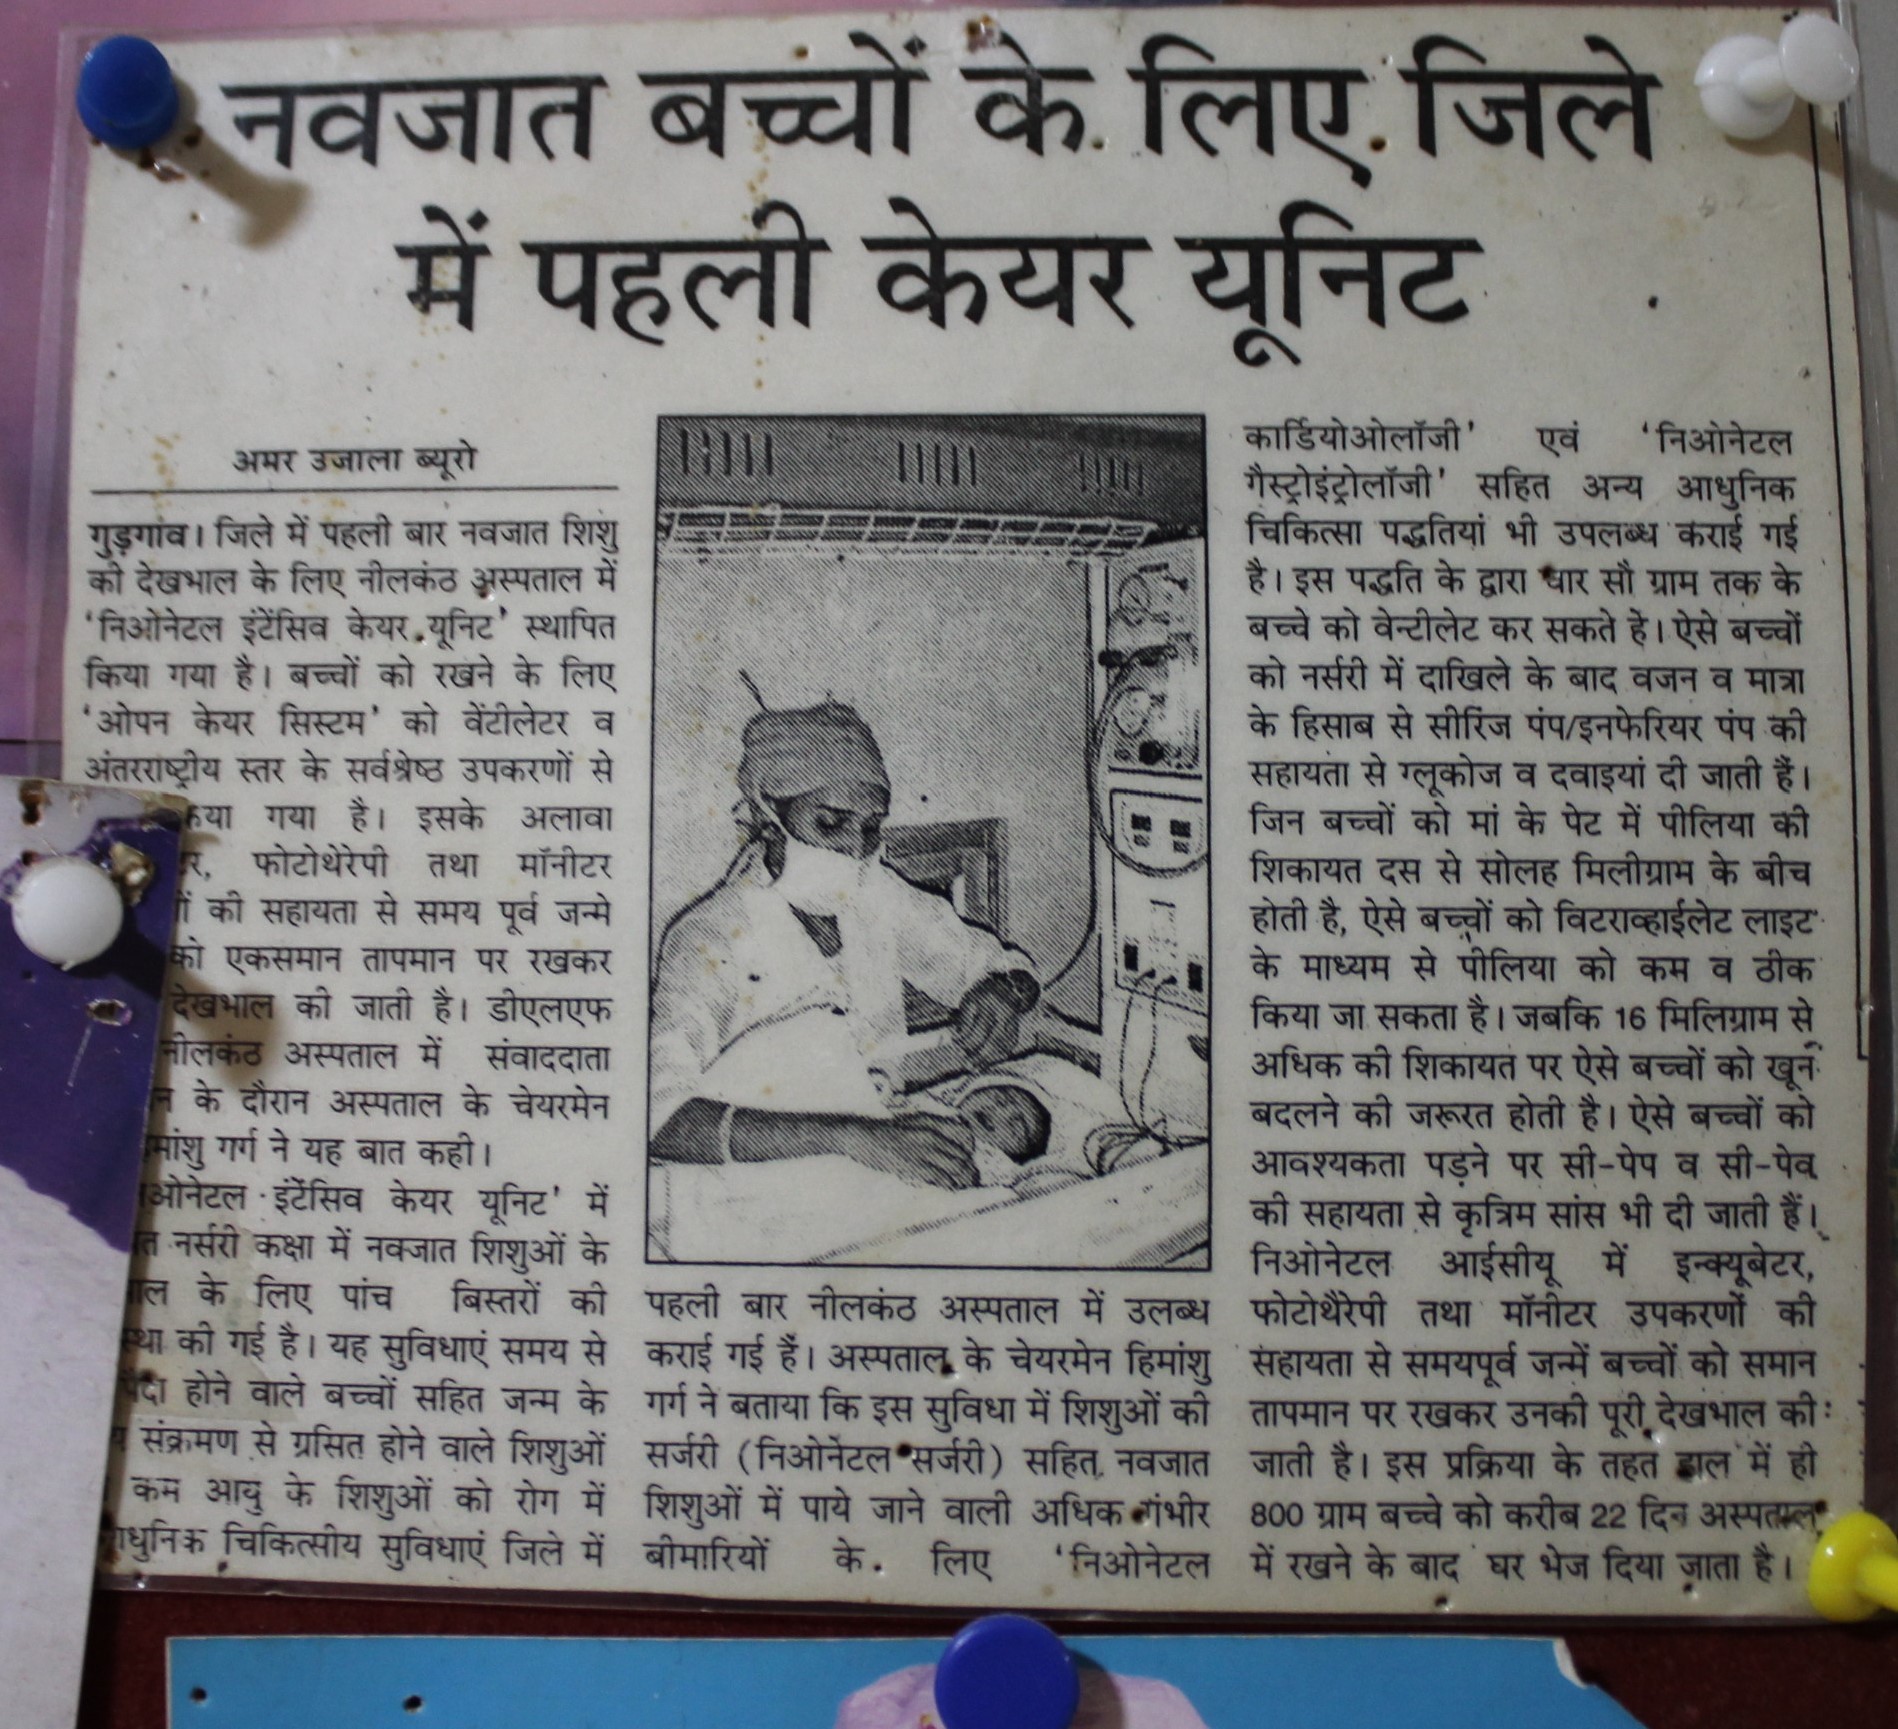 नवजात बच्चों के लिए जिले
में पहली केयर यूनिट
अमर उजाला ब्यूरो
गुड़गांव। जिले में पहली बार नवजात शिशु
की देखभाल के लिए नीलकंठ अस्पताल में
‘निओनेटल इंटेंसिव केयर यूनिट’ स्थापित
किया गया है। बच्चों को रखने के लिए
‘ओपन केयर सिस्टम’ को वेंटीलेटर व
अंतरराष्ट्रीय स्तर के सर्वश्रेष्ठ उपकरणों से
गया है। इसके अलावा
फोटोथेरेपी तथा मॉनीटर
की सहायता से समय पूर्व जन्मे
को एकसमान तापमान पर रखकर
देखभाल की जाती है। डीएलएफ
नीलकंठ अस्पताल में संवाददाता
के दौरान अस्पताल के चेयरमेन
गर्ग ने यह बात कही।
इंटेंसिव केयर यूनिट’ में
नर्सरी कक्षा में नवजात शिशुओं के
के लिए पांच बिस्तरों की
की गई है। यह सुविधाएं समय से
होने वाले बच्चों सहित जन्म के
संक्रमण से ग्रसित होने वाले शिशुओं
कम आयु के शिशुओं को रोग में
चिकित्सीय सुविधाएं जिले में
पहली बार नीलकंठ अस्पताल में उलब्ध
कराई गई हैं। अस्पताल के चेयरमेन हिमांशु
गर्ग ने बताया कि इस सुविधा में शिशुओं की
सर्जरी (निओनेटल सर्जरी) सहित नवजात
शिशुओं में पाये जाने वाली अधिक गंभीर
बीमारियों के लिए ‘निओनेटल
कार्डियोओलॉजी’ एवं ‘निओनेटल
गैस्ट्रोइंट्रोलॉजी’ सहित अन्य आधुनिक
चिकित्सा पद्धतियां भी उपलब्ध कराई गई
है। इस पद्धति के द्वारा चार सौ ग्राम तक के
बच्चे को वेन्टीलेट कर सकते हैं। ऐसे बच्चों
को नर्सरी में दाखिले के बाद वजन व मात्रा
के हिसाब से सीरिंज पंप/इनफेरियर पंप की
सहायता से ग्लूकोज व दवाइयां दी जाती हैं।
जिन बच्चों को मां के पेट में पीलिया की
शिकायत दस से सोलह मिलीग्राम के बीच
होती है, ऐसे बच्चों को विटराव्हाईलेट लाइट
के माध्यम से पीलिया को कम व ठीक
किया जा सकता है। जबकि 16 मिलिग्राम से
अधिक की शिकायत पर ऐसे बच्चों को खून
बदलने की जरूरत होती है। ऐसे बच्चों को
आवश्यकता पड़ने पर सी-पेप व सी-पेव
की सहायता से कृत्रिम सांस भी दी जाती हैं।
निओनेटल आईसीयू में इन्क्यूबेटर,
फोटोथैरेपी तथा मॉनीटर उपकरणों की
सहायता से समयपूर्व जन्में बच्चों को समान
तापमान पर रखकर उनकी पूरी देखभाल की
जाती है। इस प्रक्रिया के तहत हाल में ही
800 ग्राम बच्चे को करीब 22 दिन अस्पताल
में रखने के बाद घर भेज दिया जाता है।